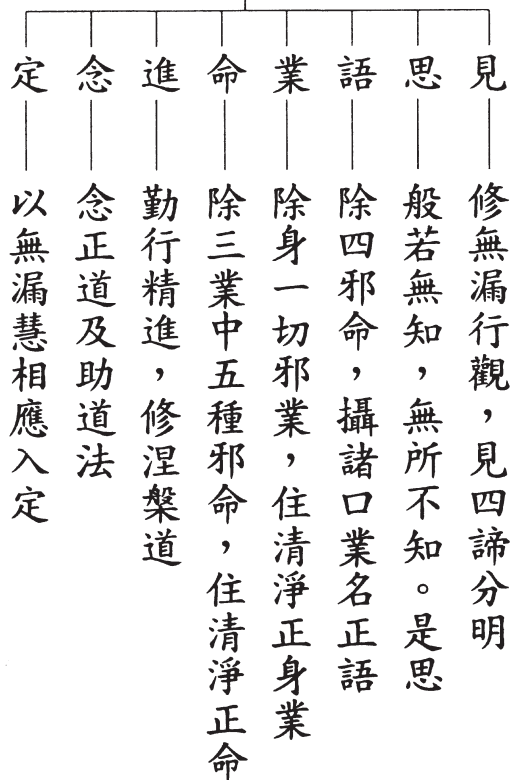 見 修無漏行觀，見四諦分明
思 般若無知，無所不知。是思
語 除四邪命，攝諸口業名正語
業 除身一切邪業，住清淨正身業
命 除三業中五種邪命，住清淨正命
進 勤行精進，修涅槃道
念 念正道及助道法
定 以無漏慧相應入定